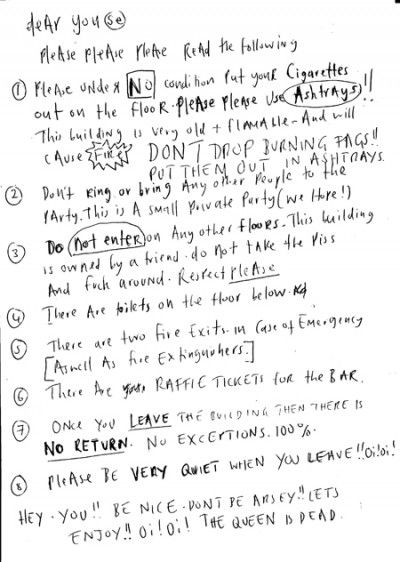 dear you (se)
please please please Read the following
① please under NO condition put your Cigarettes
out on the floor. please please use Ashtrays!!
This building is very old + flamable - And will
cause FIRE DON'T DROP BURNING FAGS!!
PUT THEM OUT IN ASHTRAYS
② Don't ring or bring Any other people to the
PARty. This is A small private Party (we Hope!)
③ Do not enter on Any other floors. This building
is owned by a friend. do not take the piss
And fuck around. Respect please
④ There Are toilets on the floor below.
⑤ There are two fire Exits. in Case of Emergency
[Aswell As fire Extinguishers.]
⑥ There Are RAFFIC TICKETS for the BAR.
⑦ Once You LEAVE THE BUILDING THEN THERE IS
NO RETURN. NO EXCEPTIONS. 100%.
⑧ PLEASE BE VERY QUIET WHEN YOU LEAVE!! Oi! oi!
HEY. YOU!! BE NICE. DONT BE ARSEY!! LETS
ENJOY!! Oi! Oi! THE QUEEN IS DEAD.